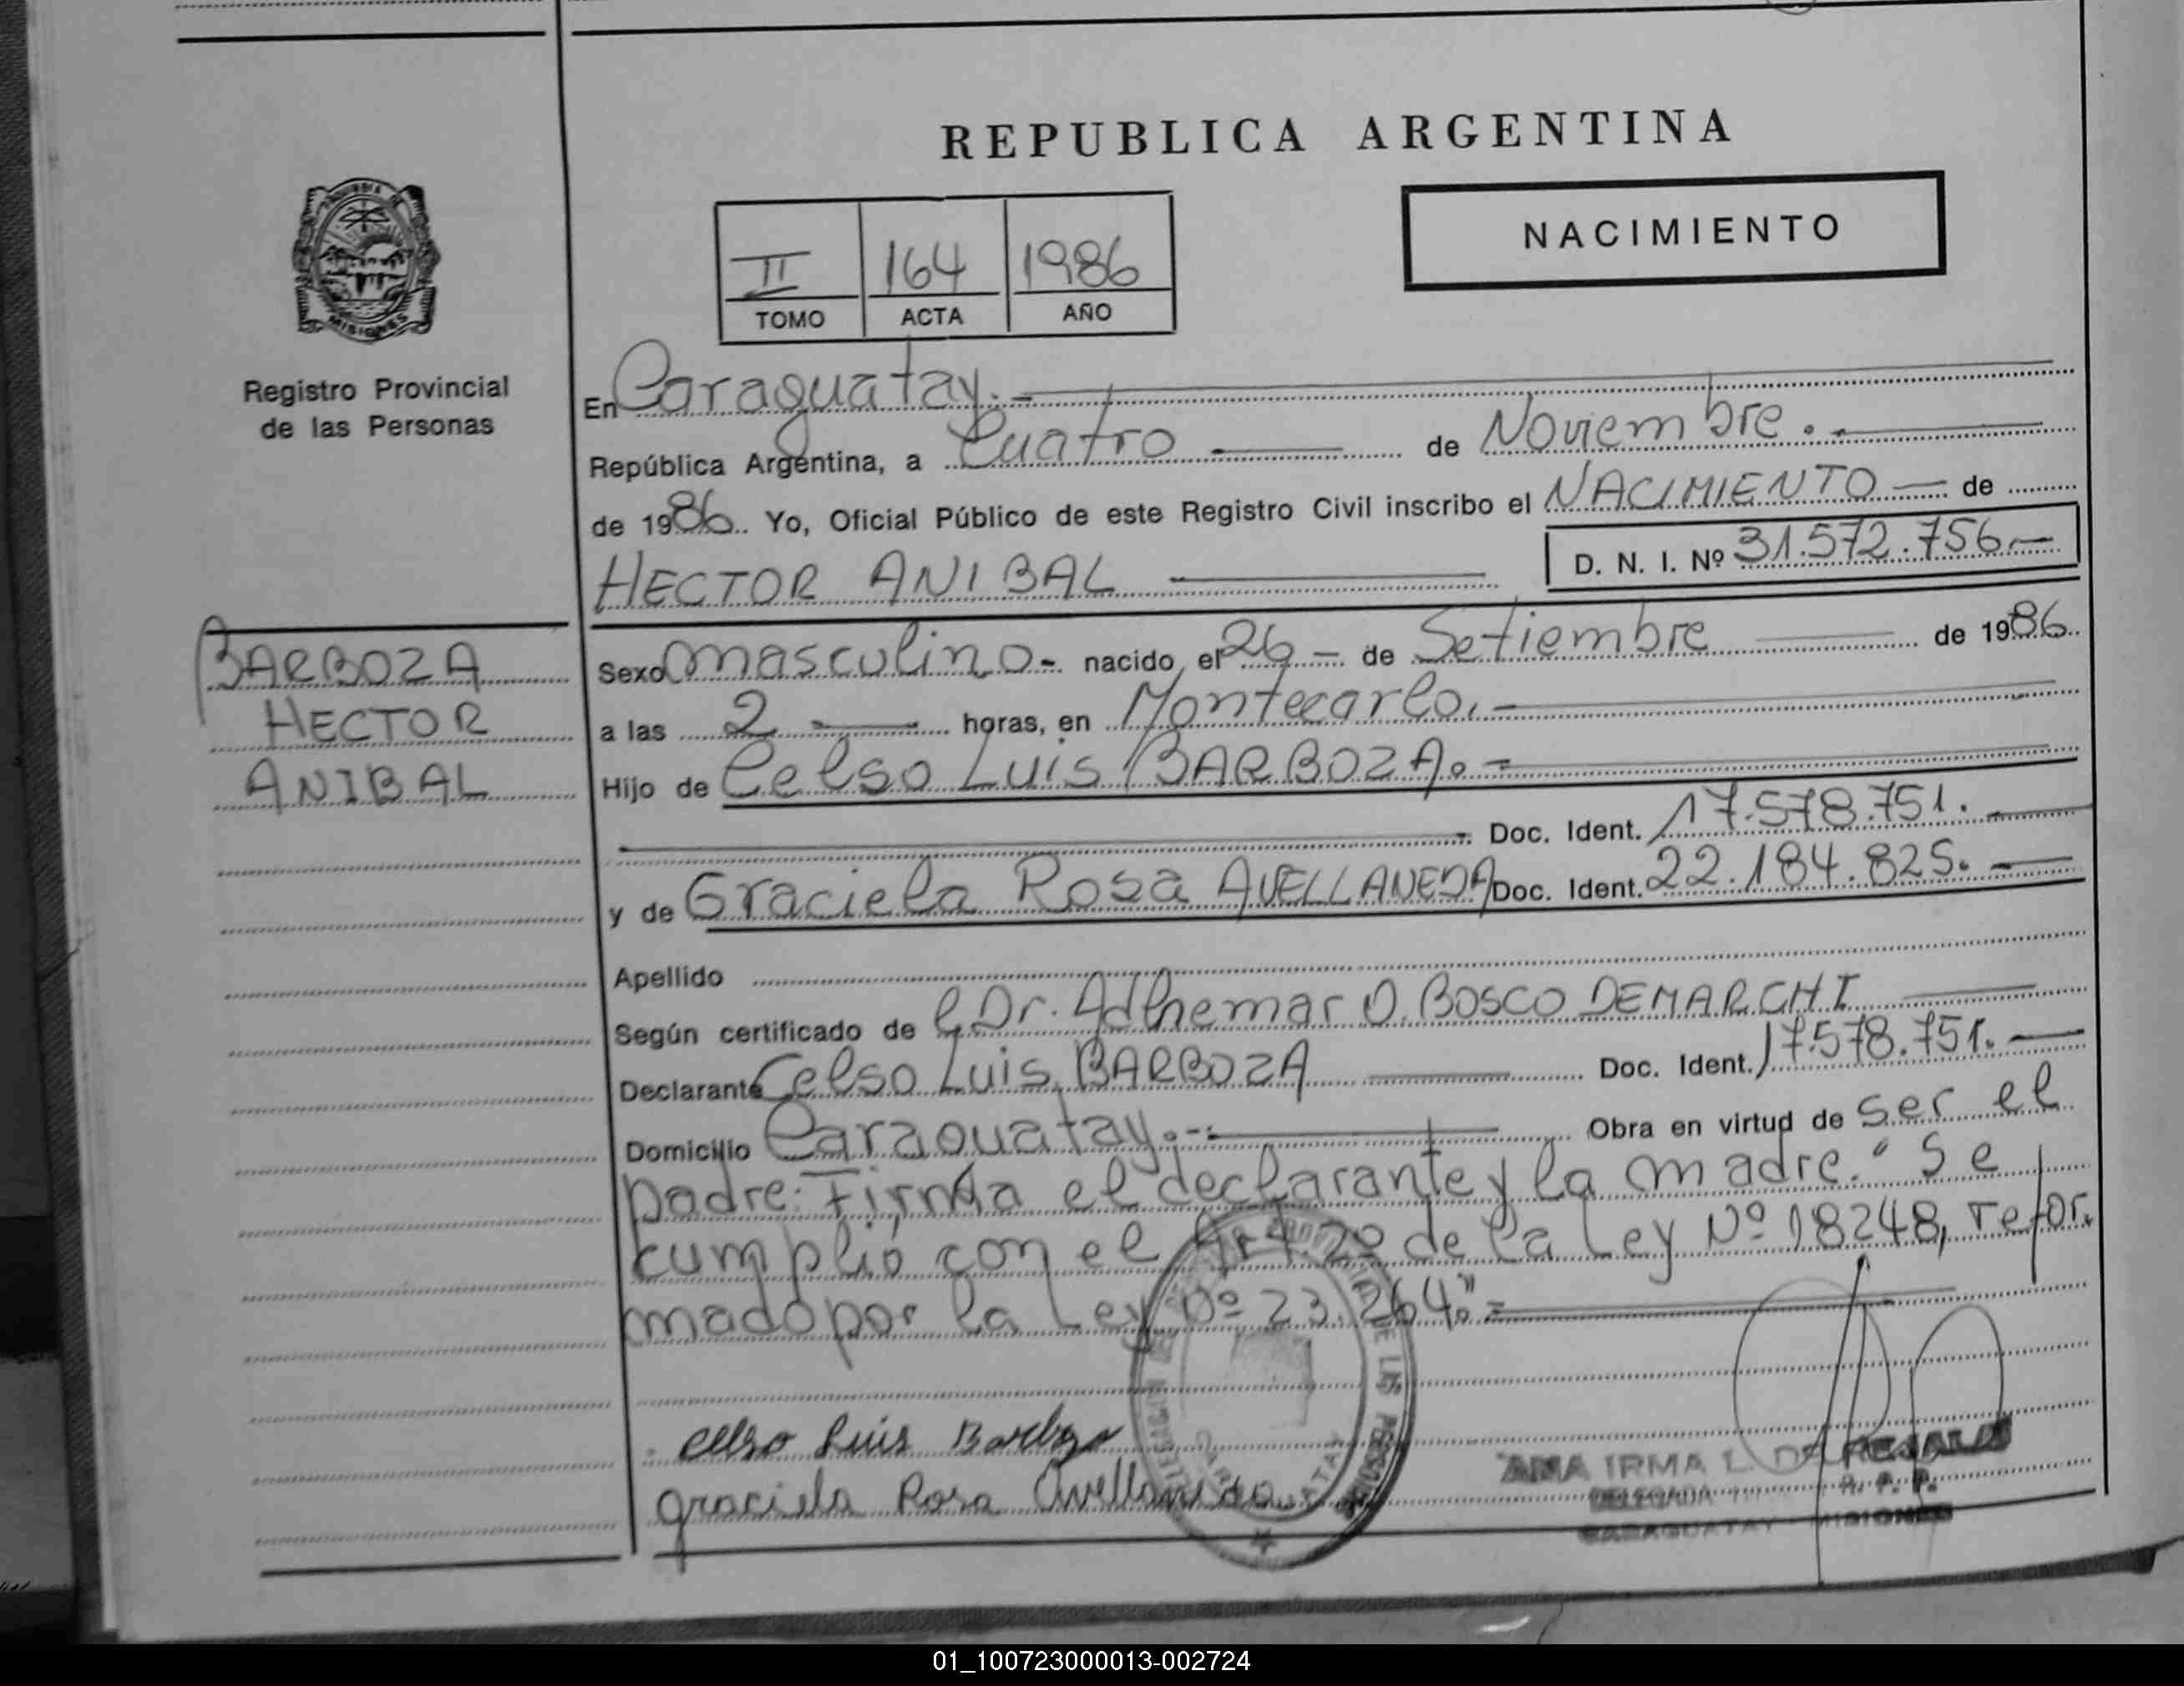 REPUBLICA ARGENTINA
NACIMIENTO
II 164 1986
TOMO ACTA AÑO
MISIONES
Registro Provincial
de las Personas
BARBOZA
HECTOR
ANIBAL
En Caraguatay.-
República Argentina, a Cuatro de Noviembre.-
de 1986. Yo, Oficial Público de este Registro Civil inscribo el NACIMIENTO de
HECTOR ANIBAL D. N. I. Nº 31.572.756.-
Sexo masculino.- nacido el 26 - de Setiembre de 1986.
a las 2 horas, en Montecarlo.-
Hijo de Celso Luis BARBOZA.-
Doc. Ident. 17.578.751.-
y de Graciela Rosa AVELLANEDA Doc. Ident. 22.184.825.-
Apellido
Según certificado de el Dr. Adhemar O. BOSCO DEMARCHI
Declarante Celso Luis BARBOZA Doc. Ident. 17.578.751.-
Domicilio Caraguatay.- Obra en virtud de ser el
padre: Firma el declarante y la madre. "Se
cumplió con el Art. 2º de la Ley Nº 18248, refor.
mado por la Ley Nº 23.264."=
Celso Luis Barboza
Graciela Rosa Avellaneda
DE LAS PERSONAS
ANA IRMA L. DE
DELEGADA R. P. P.
CARAGUATAY - MISIONES
01_100723000013-002724